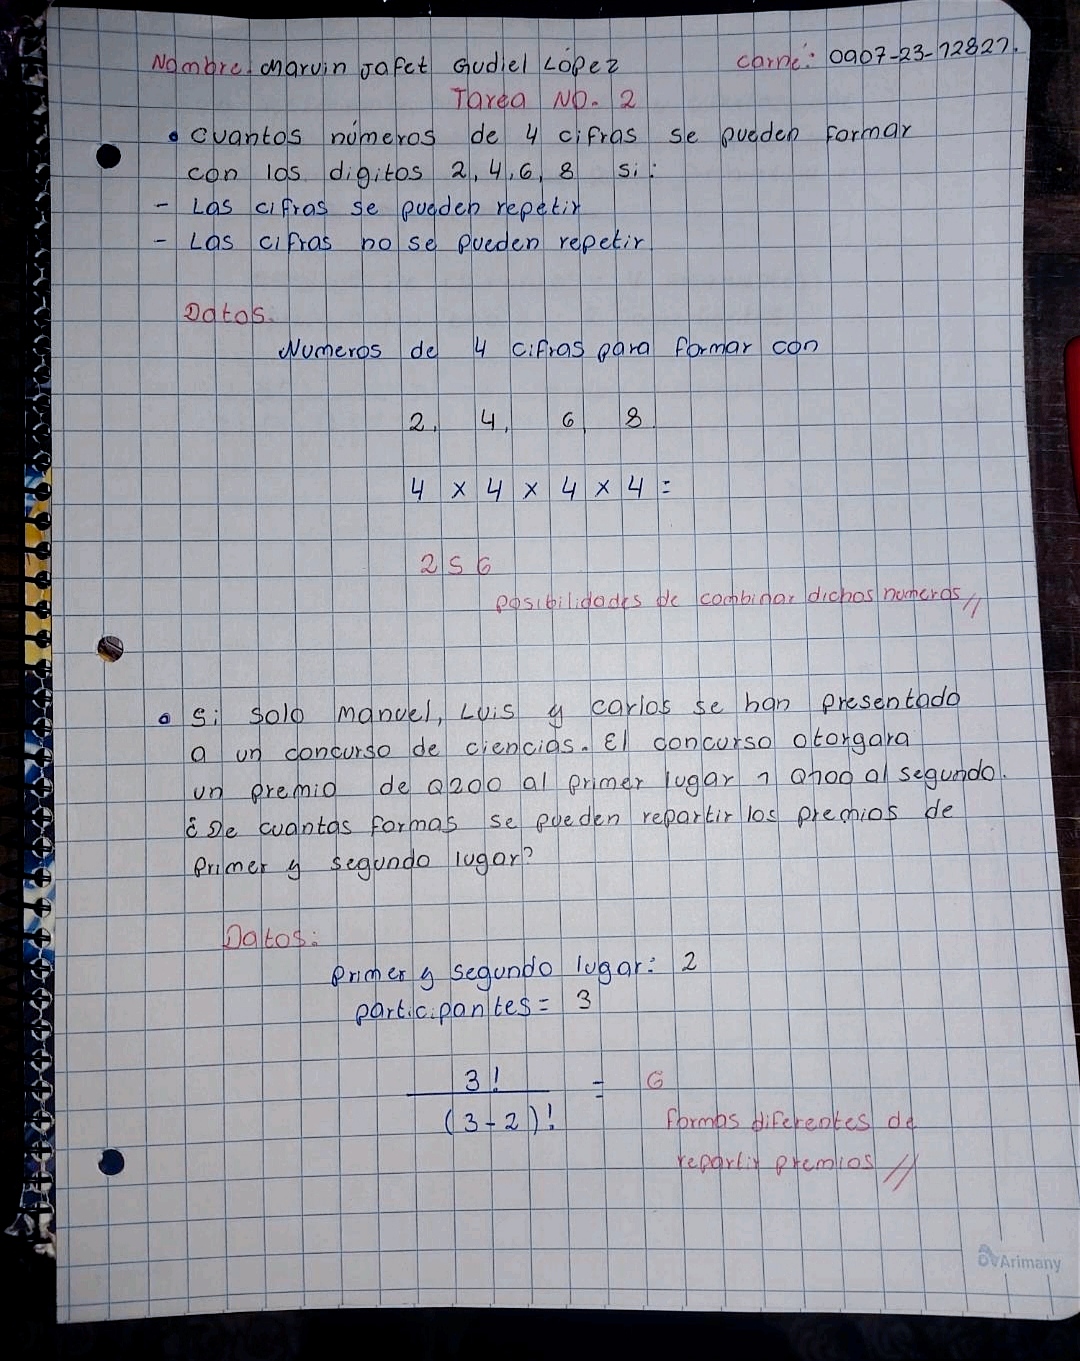 Nombre. Marvin Jafet Gudiel López carné: 0907-23-12827.
Tarea No. 2
• Cuantos números de 4 cifras se pueden formar
con los digitos 2, 4, 6, 8 si:
- Las cifras se pueden repetir
- Las cifras no se pueden repetir
Datos.
Numeros de 4 cifras para formar con
2, 4, 6, 8
4 x 4 x 4 x 4 =
256
posibilidades de combinar dichos numeros //
• Si solo Manuel, Luis y carlos se han presentado
a un concurso de ciencias. El concurso otorgara
un premio de Q200 al primer lugar y Q100 al segundo.
¿De cuantas formas se pueden repartir los premios de
primer y segundo lugar?
Datos:
primer y segundo lugar: 2
participantes = 3
3! = 6
(3-2)!
formas diferentes de
repartir premios //
Arimany